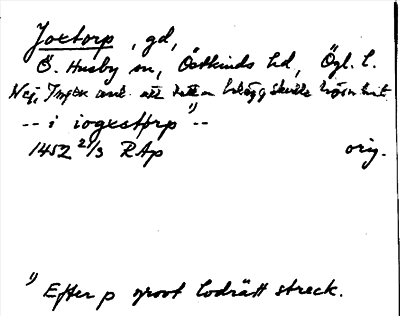 Joxtorp, gd,
Ö. Husby sn, Östkinds hd, Ögl. l.
Nej, Ingen anl. att detta belägg skulle höra hit.
-- i iogxstþrp ¹) --
1452 21/3 RAp orig.
¹) Efter p ovot lodrätt streck.